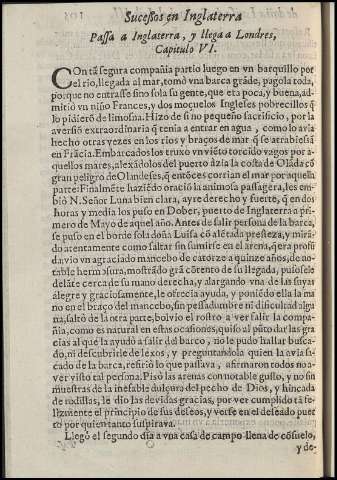 Sucessos en Inglaterra
Passa a Inglaterra, y llega a Londres,
Capitulo VI.
COn tã segura compañia partio luego en vn barquillo por
el rio, llegada al mar, tomò vna barca grãde, pagola toda,
porque no entrasse sino sola su gente, que era poca, y buena, ad-
mitiò vn niño Frances, y dos moçuelos Ingleses pobrecillos q̃
lo pidierõ de limosna. Hizo de si no pequeño sacrificio, por la
auersiõ extraordinaria q̃ tenia a entrar en agua, como lo auia
hecho otras vezes en los rios y braços de mar q̃ se atrabiessã
en Frãcia. Embarcados los truxo vn viẽto torcido vagos por a-
quellos mares, alexãdolos del puerto àzia la costa de Olãda cõ
gran peligro de Olandeses, q̃ entõces corrian el mar por aquella
parte: Finalmẽte haziẽdo oraciõ la animosa passagera, les em-
biò N. Señor Luna bien clara, ayre derecho y fuerte, q̃ en dos
horas y media los puso en Dober, puerto de Inglaterra a pri-
mero de Mayo de aquel año. Antes de salir persona de la barca,
se puso en el bordo sola doña Luisa cõ alẽtada presteza, y mirã-
do atentamente como saltar sin sumirse en el arena, q̃ era profũ
da, vio vn agraciado mancebo de catorze a quinze años, de no-
table hermosura, mostrãdo grã cõtento de su llegada, pusosele
delãte cerca de su mano derecha, y alargando vna de las suyas
alegre y graciosamente, le ofrecia ayuda, y poniẽdo ella la ma
no en el braço del mancebo, sin pesadumbre ni dificultad algu-
na, saltò de la otra parte, boluio el rostro a ver salir la compa-
ñia, como es natural en estas ocasiones, quiso al pũto dar las gra
cias al que la ayudò a salir del barco, no le pudo hallar buscã-
do, ni descubrirle de lexos, y preguntandola quien la auia sa-
cado de la barca, refirio lo que passaua, afirmaron todos no a-
ver visto tal persona. Pisò las arenas con notable gusto, y no sin
muestras de la inefable dulçura del pecho de Dios, y hincada
de rodillas, le dio las deuidas gracias, por ver cumplido tã fe-
lizmente el principio de sus deseos, y verse en el deseado puer
to por quien tanto suspiraua.
Llegò el segundo dia a vna casa de campo llena de cõsuelo,
y de-